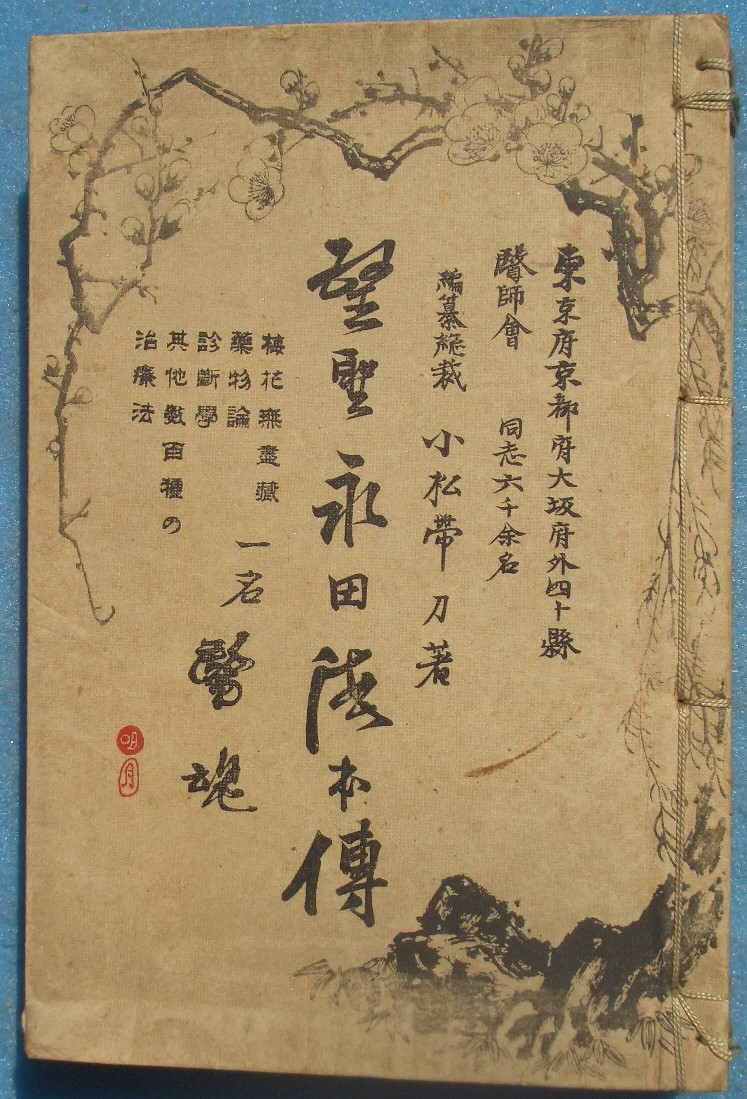 東京府京都府大坂府外四十縣
醫師會 同志六千余名
編纂総裁 小松帶刀著
醫聖永田德本傳
梅花無盡藏
藥物論
診斷學
其他數百種の
治療法
一名 醫魂
明月